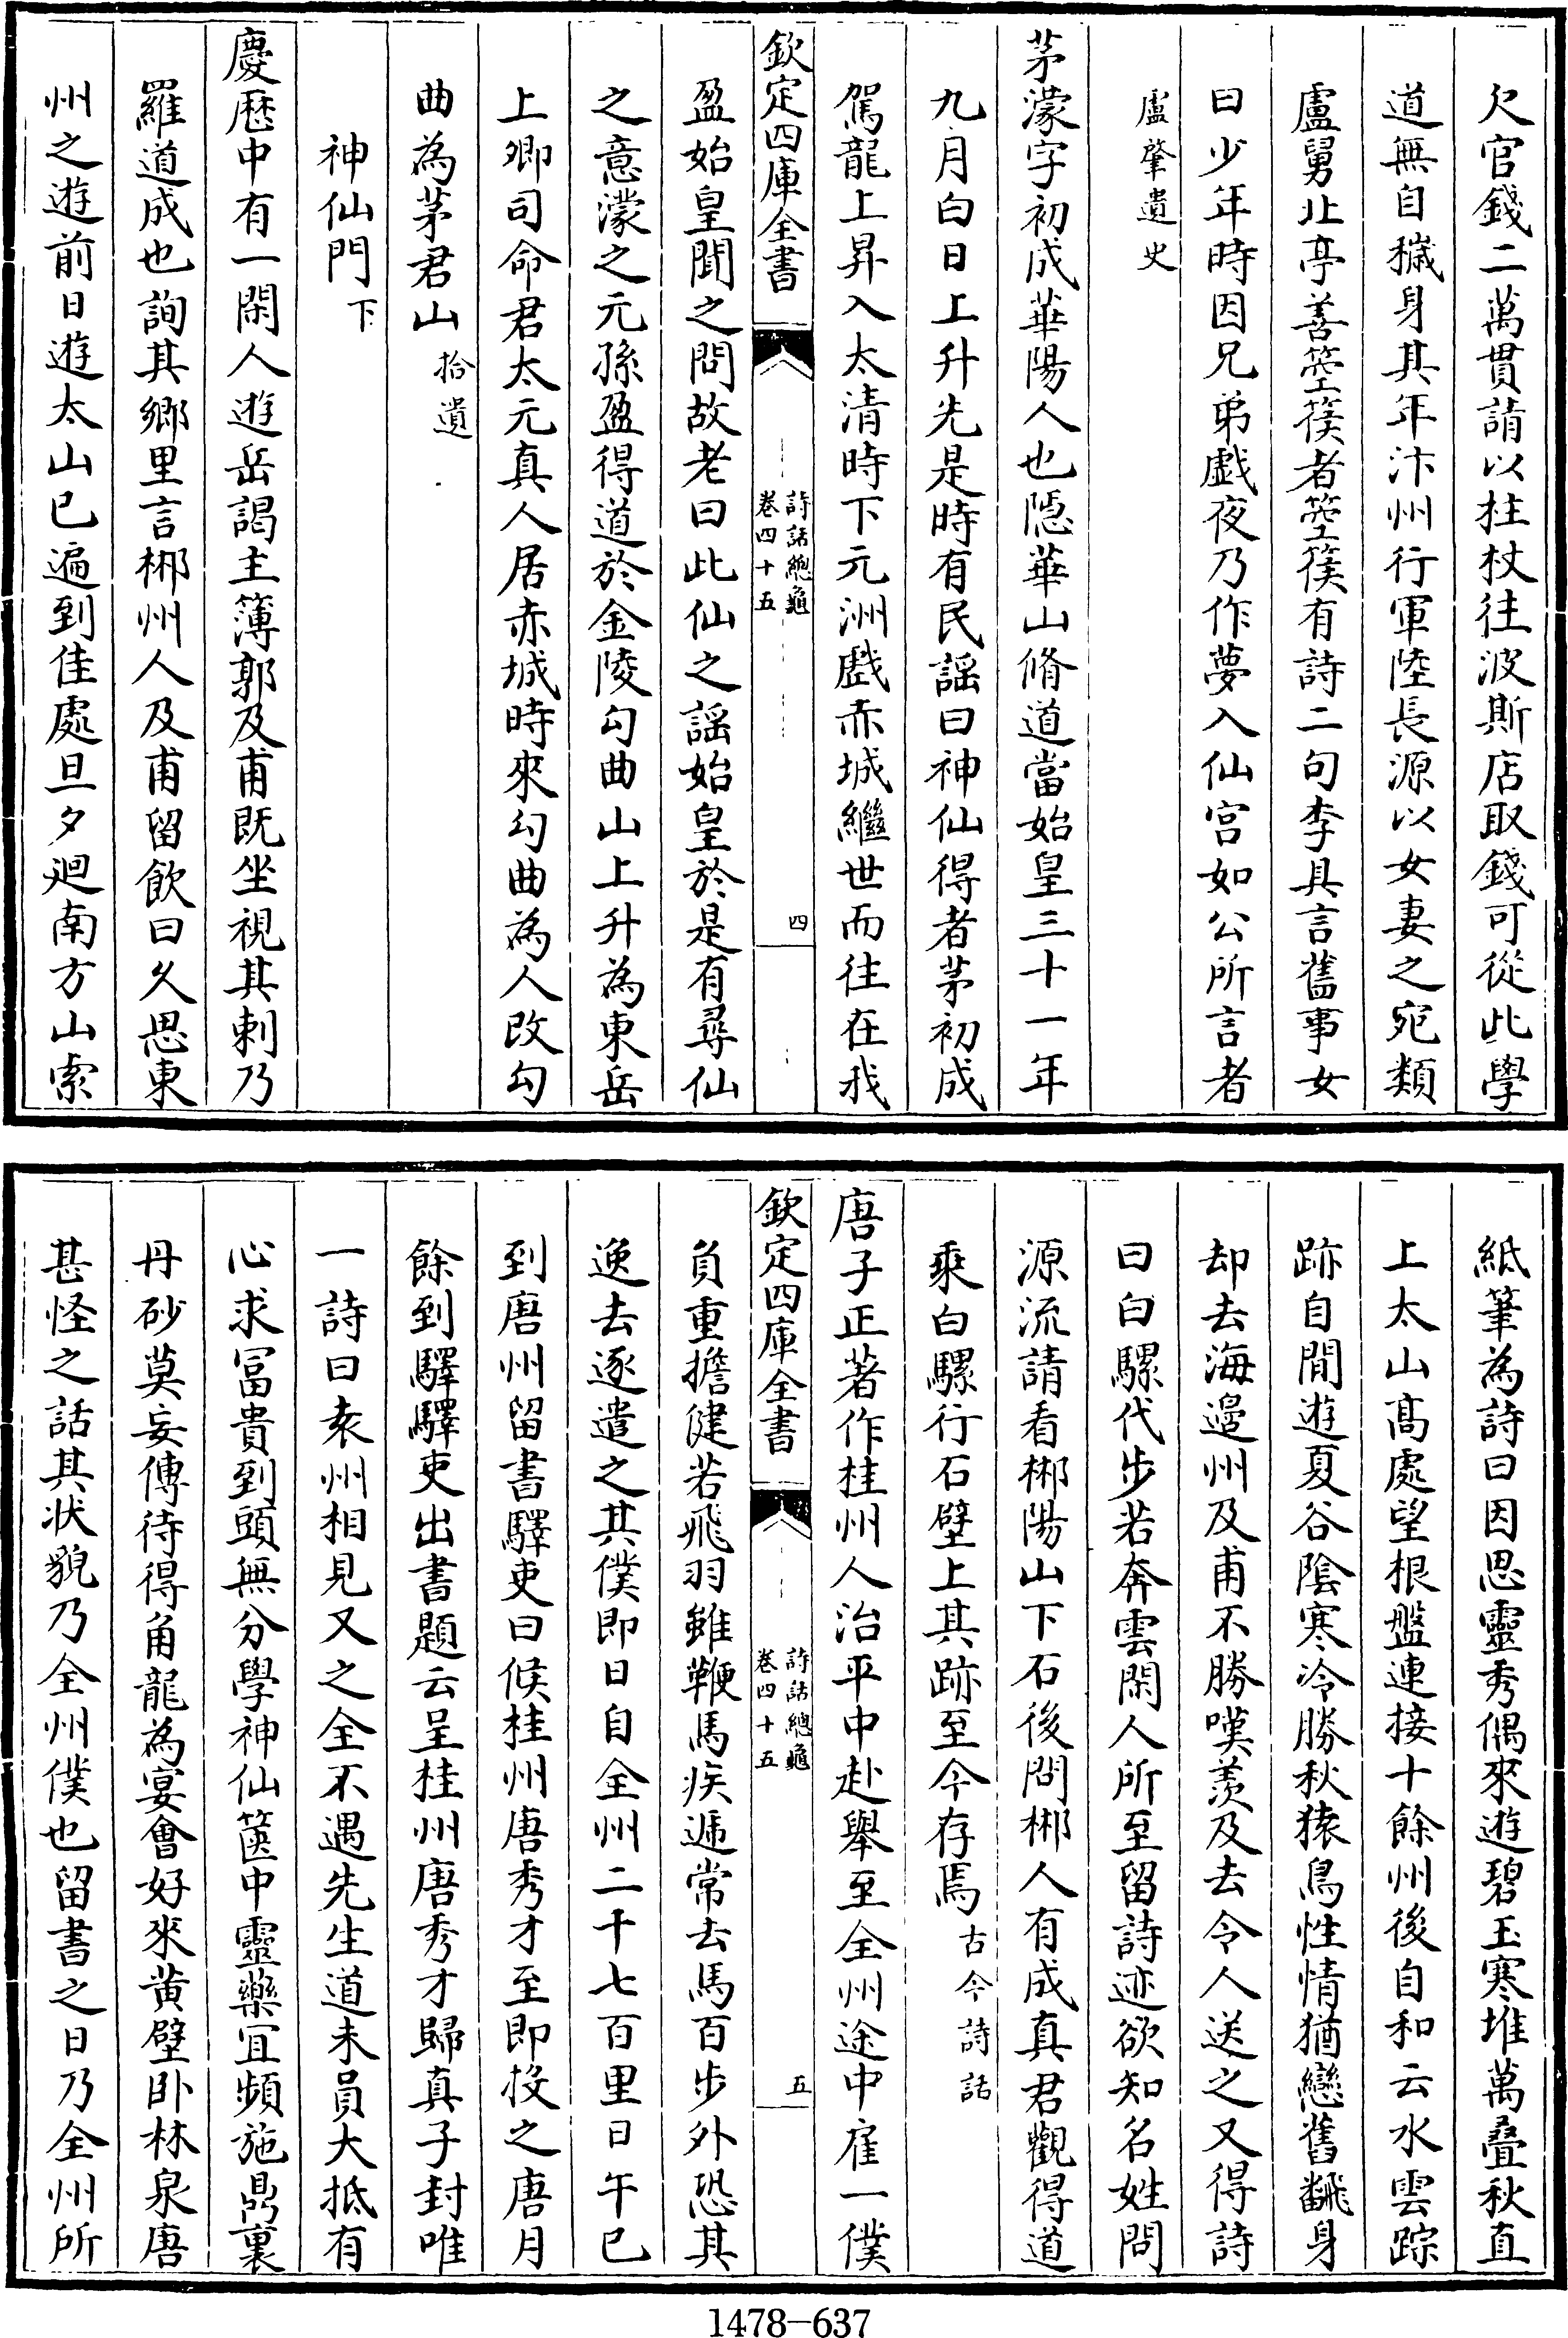 欠官錢二萬貫請以柱杖往波斯店取錢可從此學
道無自穢身其年汴州行軍陸長源以女妻之宛類
盧舅北亭善箜篌者箜篌有詩二句李具言舊事女
曰少年時因兄弟戯夜乃作夢入仙宫如公所言者
盧肇遺史
茅濛字初成華陽人也隠華山脩道當始皇三十一年
九月白日上升先是時有民謡曰神仙得者茅初成
駕龍上昇入太清時下元洲戲赤城繼世而往在我
欽定四庫全書
詩話總龜
卷四十五
四
盈始皇聞之問故老曰此仙之謡始皇於是有尋仙
之意濛之元孫盈得道於金陵勾曲山上升為東岳
上卿司命君太元真人居赤城時來勾曲為人改勾
曲為茅君山拾遺
神仙門下
慶厯中有一閑人遊岳謁主簿郭及甫既坐視其刺乃
羅道成也詢其鄉里言郴州人及甫留飲曰久思東
州之遊前日遊太山已遍到佳處旦夕廻南方山索
紙筆為詩曰因思靈秀偶來遊碧玉寒堆萬疊秋直
上太山髙處望根盤連接十餘州後自和云水雲踪
跡自閒遊夏谷陰寒冷勝秋猿鳥性情猶戀舊飜身
却去海邊州及甫不勝嘆羡及去令人送之又得詩
曰白騾代步若奔雲閑人所至留詩迹欲知名姓問
源流請看郴陽山下石後問郴人有成真君觀得道
乘白騾行石壁上其跡至今存焉古今詩話
唐子正著作桂州人治平中赴舉至全州途中雇一僕
欽定四庫全書
詩話總龜
卷四十五
五
負重擔健若飛羽雖鞭馬疾遞常去馬百步外恐其
逸去逐遣之其僕即日自全州二千七百里日午已
到唐州留書驛吏曰候桂州唐秀才至即投之唐月
餘到驛驛吏出書題云呈桂州唐秀才歸真子封唯
一詩曰袁州相見又之全不遇先生道未員大抵有
心求冨貴到頭無分學神仙篋中靈藥宜頻施鼎裏
丹砂莫妄傳待得角龍為宴會好來黄壁卧林泉唐
甚怪之話其状貌乃全州僕也留書之日乃全州所
1478-637